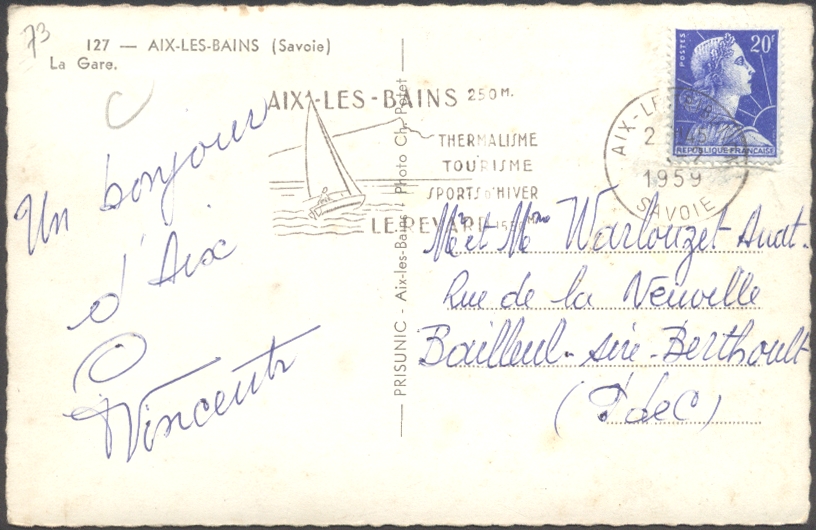 73
127 — AIX-LES-BAINS (Savoie)
La Gare.
AIX-LES-BAINS 250 M.
THERMALISME
TOURISME
SPORTS D'HIVER
LE REVARD
PRISUNIC - Aix-les-Bains - Photo Ch. Potet
20F
POSTES
REPUBLIQUE FRANÇAISE
AIX-LES-BAINS
1959
SAVOIE
Un bonjour
d'Aix
Vincent
Mr et Mme Warlouzet Audt.
Rue de la Neuville
Bailleul-sire-Berthoult
(P de C)